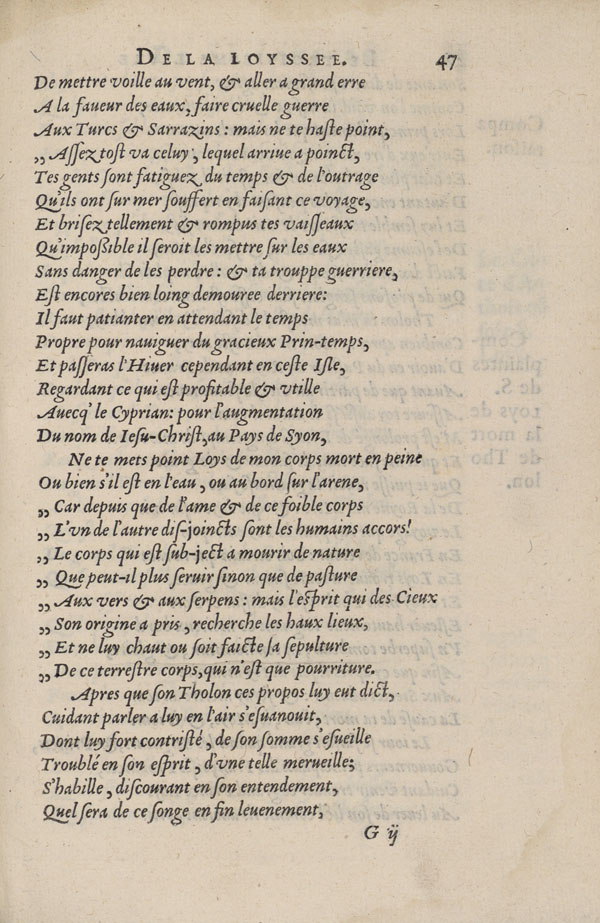 DE LA LOYSSEE. 47
De mettre voille au vent, & aller a grand erre
A la faueur des eaux, faire cruelle guerre
Aux Turcs & Sarrazins : mais ne te haste point,
,, Assez tost va celuy, lequel arriue a poinct,
Tes gents sont fatiguez du temps & de l'outrage
Qu'ils ont sur mer souffert en faisant ce voyage,
Et brisez tellement & rompus tes vaisseaux
Qu'impoßible il seroit les mettre sur les eaux
Sans danger de les perdre : & ta trouppe guerriere,
Est encores bien loing demouree derriere:
Il faut patianter en attendant le temps
Propre pour nauiguer du gracieux Prin-temps,
Et passeras l'Hiuer cependant en ceste Isle,
Regardant ce qui est profitable & vtille
Auecq' le Cyprian: pour l'augmentation
Du nom de Iesu-Christ, au Pays de Syon,
Ne te mets point Loys de mon corps mort en peine
Ou bien s'il est en l'eau, ou au bord sur l'arene,
,, Car depuis que de l'ame & de ce foible corps
,, L'vn de l'autre dis-joincts sont les humains accors!
,, Le corps qui est sub-ject a mourir de nature
,, Que peut-il plus seruir sinon que de pasture
,, Aux vers & aux serpens : mais l'esprit qui des Cieux
,, Son origine a pris, recherche les haux lieux,
,, Et ne luy chaut ou soit faicte sa sepulture
,, De ce terrestre corps, qui n'est que pourriture.
Apres que son Tholon ces propos luy eut dict,
Cuidant parler a luy en l'air s'esuanouit,
Dont luy fort contristé, de son somme s'esueille
Troublé en son esprit, d'vne telle merueille;
S'habille, discourant en son entendement,
Quel sera de ce songe en fin leuenement,
G ij